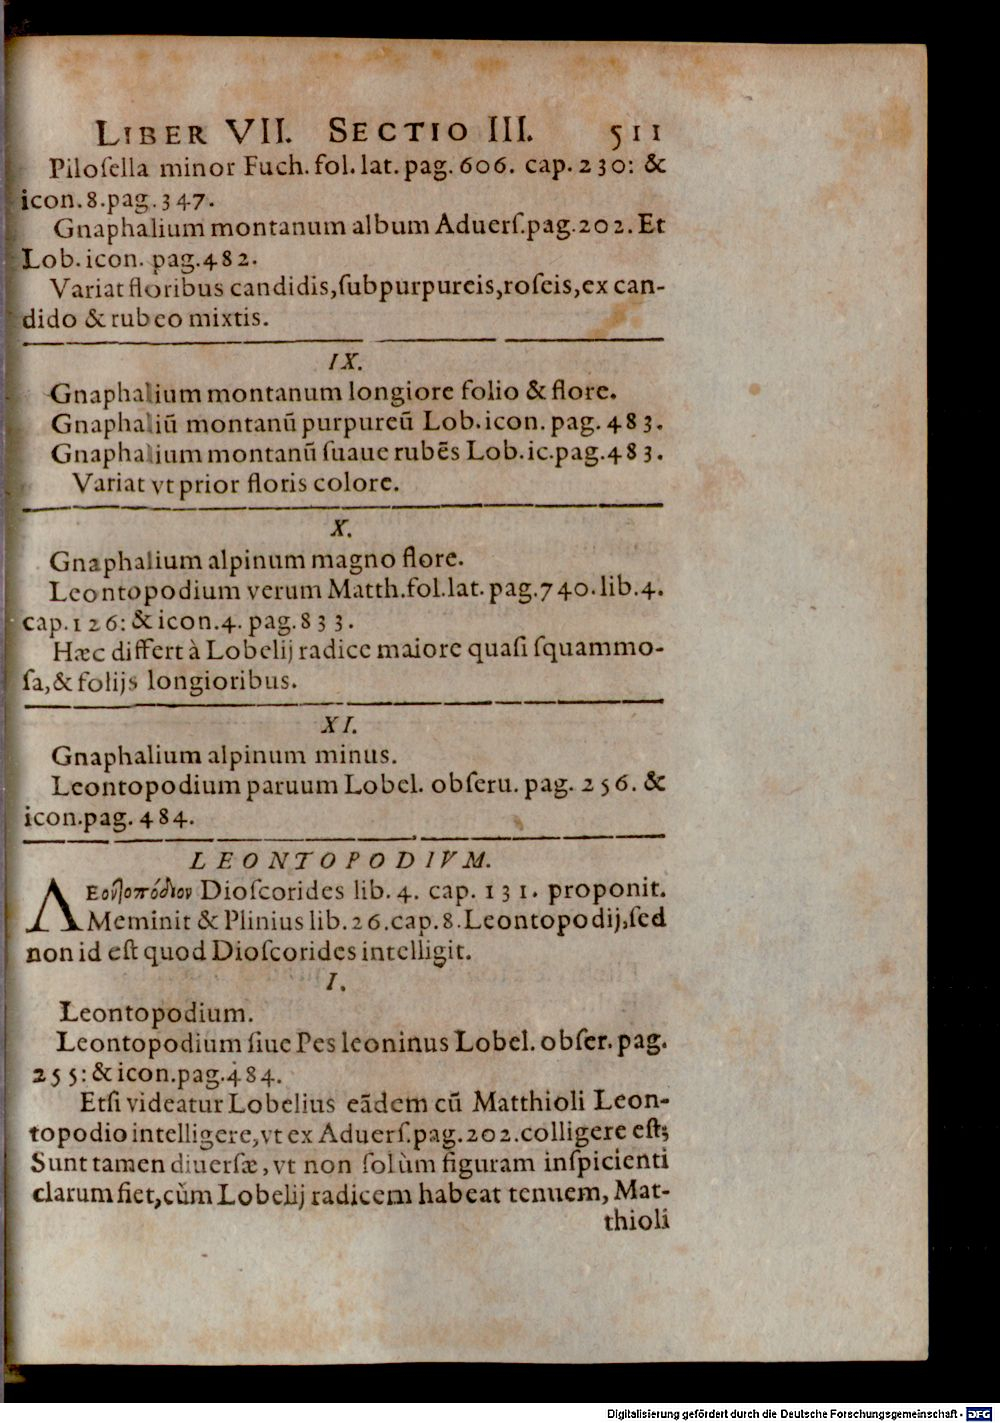 LIBER VII. SECTIO III. 511
Piloſella minor Fuch. fol. lat. pag. 606. cap. 230: &
icon. 8. pag. 347.
Gnaphalium montanum album Aduerſ. pag. 202. Et
Lob. icon. pag. 482.
Variat floribus candidis, ſubpurpureis, roſeis, ex can-
dido & rubeo mixtis.
IX.
Gnaphalium montanum longiore folio & flore.
Gnaphaliū montanū purpureū Lob. icon. pag. 483.
Gnaphalium montanū ſuaue rubēs Lob. ic. pag. 483.
Variat vt prior floris colore.
X.
Gnaphalium alpinum magno flore.
Leontopodium verum Matth. fol. lat. pag. 740. lib. 4.
cap. 126: & icon. 4. pag. 833.
Hæc differt à Lobelij radice maiore quaſi ſquammo-
ſa, & folijs longioribus.
XI.
Gnaphalium alpinum minus.
Leontopodium paruum Lobel. obſeru. pag. 256. &
icon. pag. 484.
LEONTOPODIVM.
ΛΕοντοπόδιον Dioſcorides lib. 4. cap. 131. proponit.
Meminit & Plinius lib. 26. cap. 8. Leontopodij, ſed
non id eſt quod Dioſcorides intelligit.
I.
Leontopodium.
Leontopodium ſiue Pes leoninus Lobel. obſer. pag.
255: & icon. pag. 484.
Etſi videatur Lobelius eādem cū Matthioli Leon-
topodio intelligere, vt ex Aduerſ. pag. 202. colligere eſt;
Sunt tamen diuerſæ, vt non ſolùm figuram inſpicienti
clarum fiet, cùm Lobelij radicem habeat tenuem, Mat-
thioli
Digitalisierung gefördert durch die Deutsche Forschungsgemeinschaft - DFG